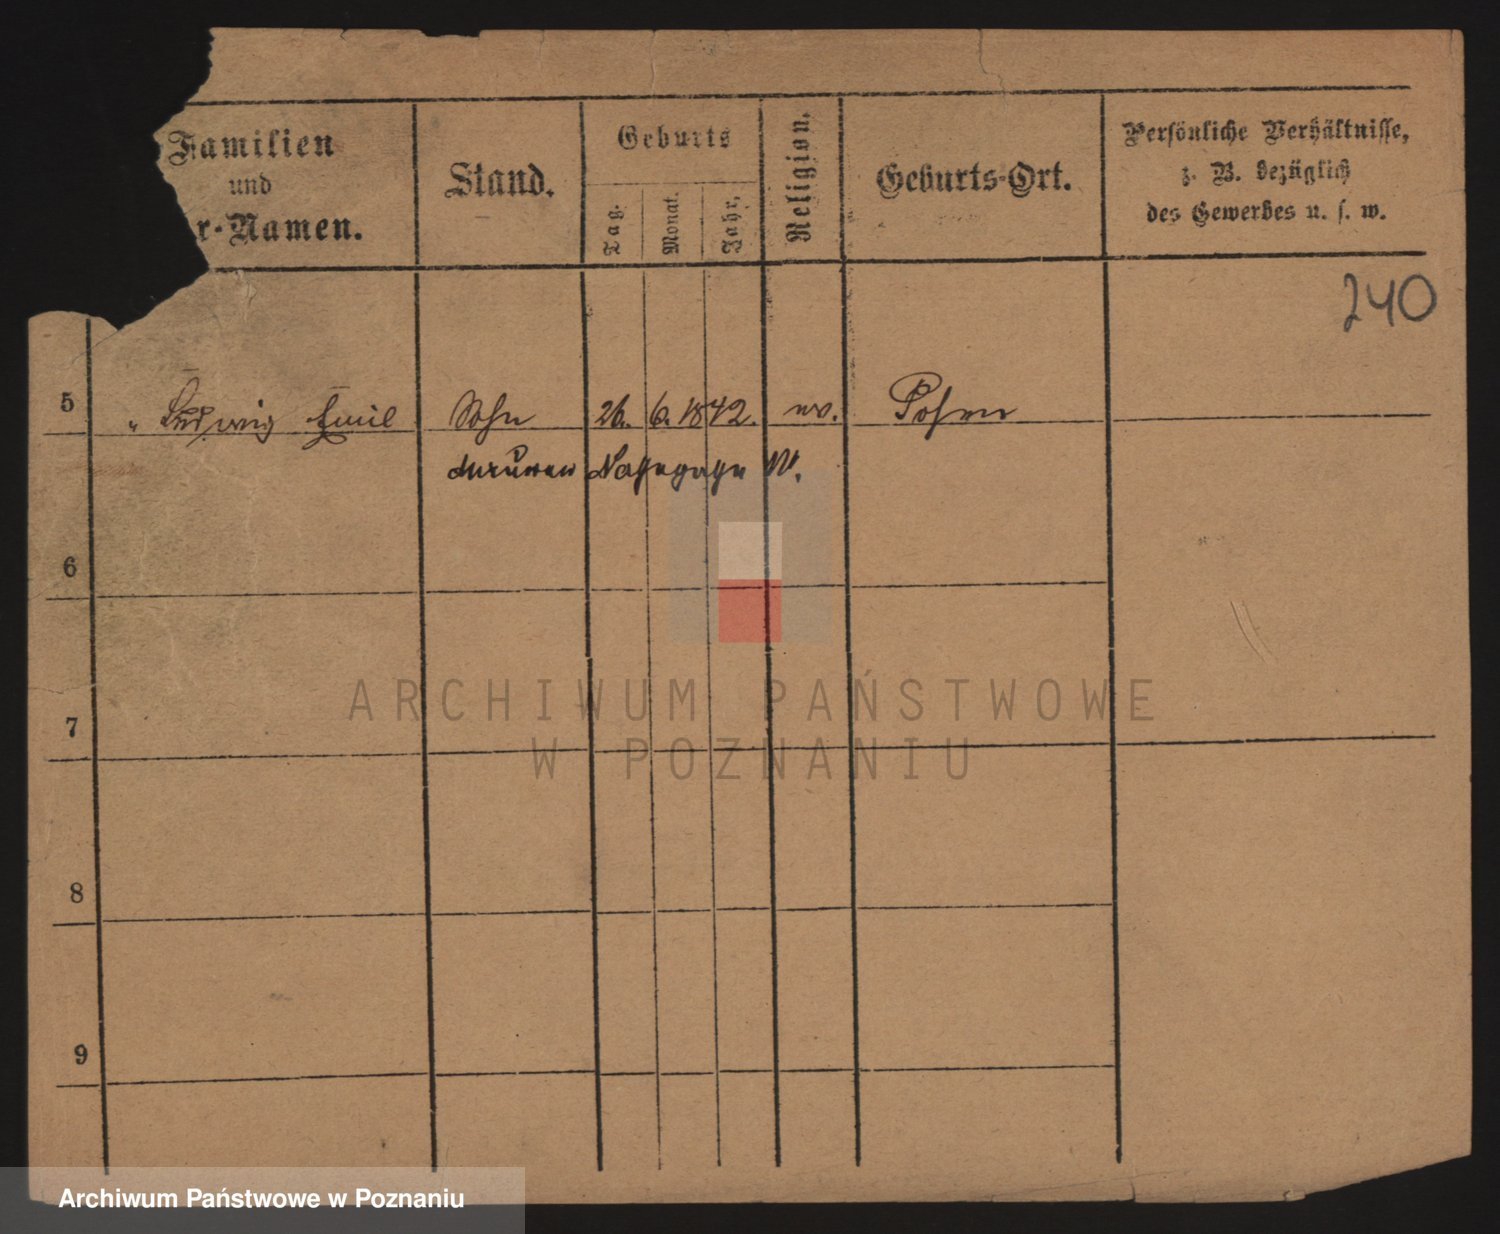 Familien
und
r-Namen.
Stand.
Geburts
Tag.
Monat.
Jahr.
Religion.
Geburts-Ort.
Persönliche Verhältnisse,
z. B. bezüglich
des Gewerbes u. s. w.
240
5 " Ludwig Emil Sohn 26. 6. 1842. ev. Posen
6
7
8
9
ARCHIWUM PAŃSTWOWE
W POZNANIU
Archiwum Państwowe w Poznaniu